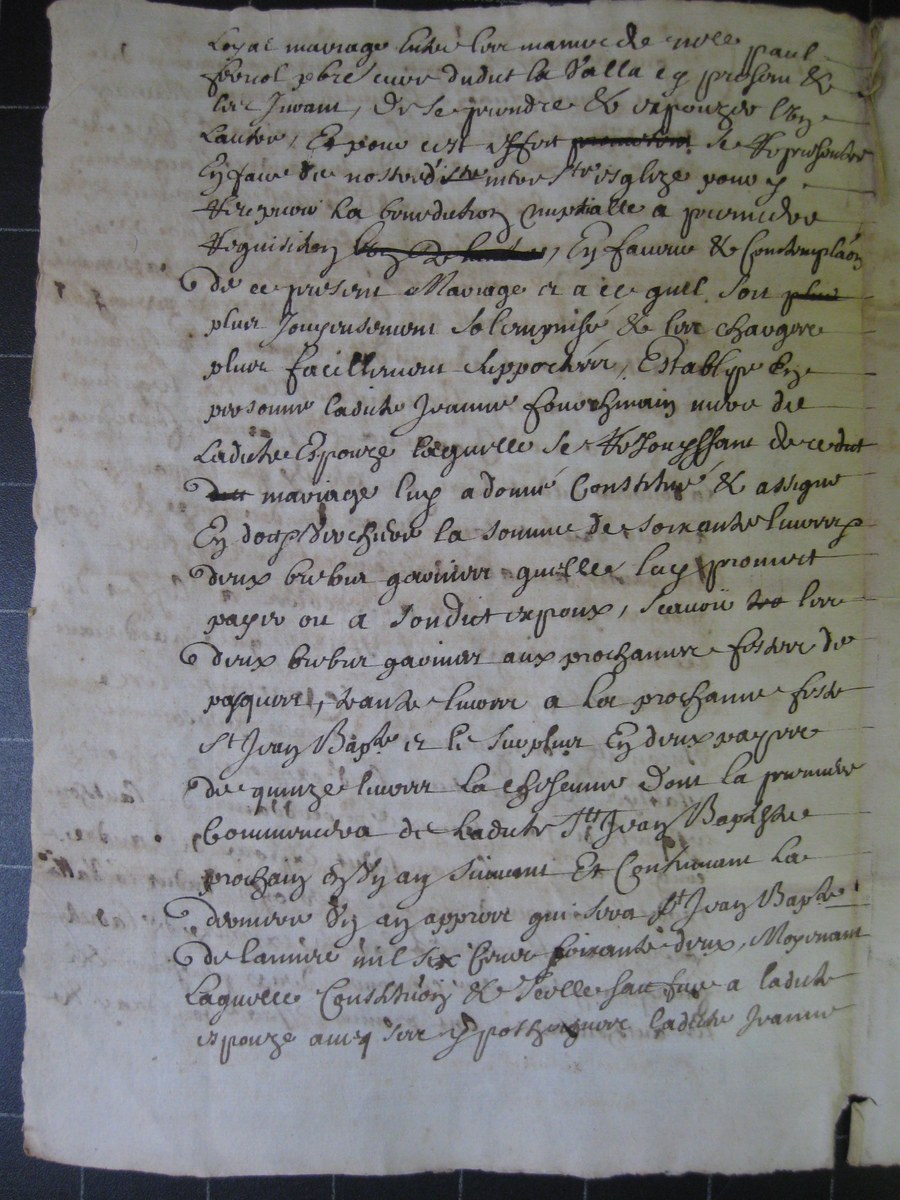 Loyal mariage Entre les mains de mre paul
ferriol pbre cure dudict la Salla cy presant &
les Jnvant, de se prendre & expouzer lung
Lautre, Et pour cest effect se Representer
En face de nostre mere Ste esglize pour y
Recepvoir la benediction nuptialle a premiere
Requisition, En faveur & Contemplaon
De ce present Mariage et a ce quil soit
plus solempnisé & les charges
plus facillement supportées, Establye En
personne ladicte Jeanne mere de
Ladicte Espouze laquelle se Resouyssant de cedict
mariage luy a donné Constitué & assigné
En dot & verchiere la somme de soixante livres
deux brebis garnies quelle luy promect
payer ou a Sondict expoux, scavoir les
Deux brebis garnies aux prochaines festes de
pasques, trante livres a la prochaine feste
St Jean Bapte et le surplus En deux payes
De quinze livres la chescune dont la premiere
Commencera de Ladicte St Jean Baptiste
prochain en Ung an Suivant Et Continuant La
derniere Ung an appres qui sera St Jean Bapte
De lannée mil six Cens soixante deux, Moyenant
Laquelle Constituon & Jcelle satisfaite a ladicte
espouze avecq ses ypotheques ladicte Jeanne